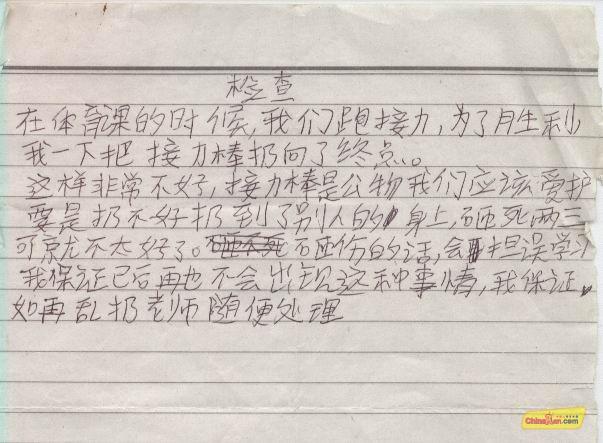 检查
在体育课的时候,我们跑接力,为了胜利
我一下把接力棒扔向了终点。
这样非常不好,接力棒是公物我们应该爱护
要是扔不好扔到了别人的身上,砸死两三
可就不太好了。砸不死砸伤的话,会担误学习
我保证已后再也不会出现这种事情,我保证。
如再乱扔老师随便处理